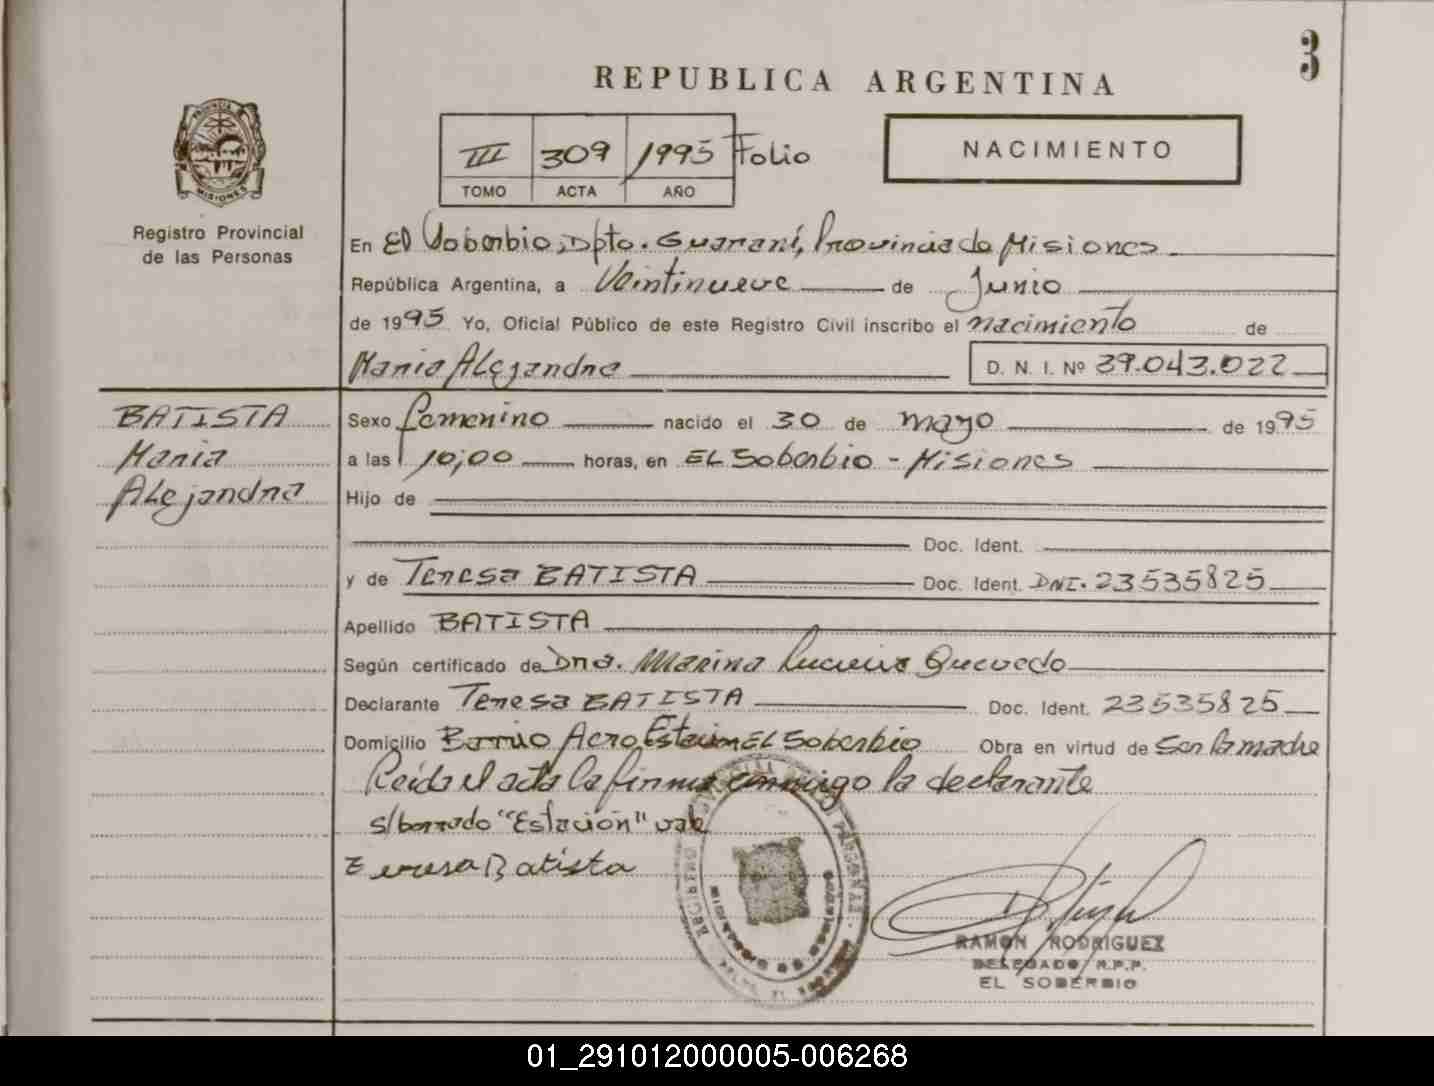 3
REPUBLICA ARGENTINA
NACIMIENTO
III 309 1995 Folio
TOMO ACTA AÑO
PROVINCIA
MISIONES
Registro Provincial
de las Personas
En El Soberbio, Dpto. Guaraní, Provincia de Misiones
República Argentina, a Veintinueve de Junio
de 1995 Yo, Oficial Público de este Registro Civil inscribo el nacimiento de
Maria Alejandra D. N. I. Nº 39.043.022
BATISTA
Maria
Alejandra
Sexo femenino nacido el 30 de mayo de 1995
a las 10,00 horas, en EL Soberbio - Misiones
Hijo de
Doc. Ident.
y de Teresa BATISTA Doc. Ident. DNI. 23535825
Apellido BATISTA
Según certificado de Dra. Marina Quevedo
Declarante Teresa BATISTA Doc. Ident. 23535825
Domicilio Barrio Aero Estacion EL Soberbio Obra en virtud de Ser la madre
Leida el acta la firma conmigo la declarante
s/borrado "Estación" vale
Teresa Batista
RAMON RODRIGUEZ
DELEGADO R.P.P.
EL SOBERBIO
01_291012000005-006268